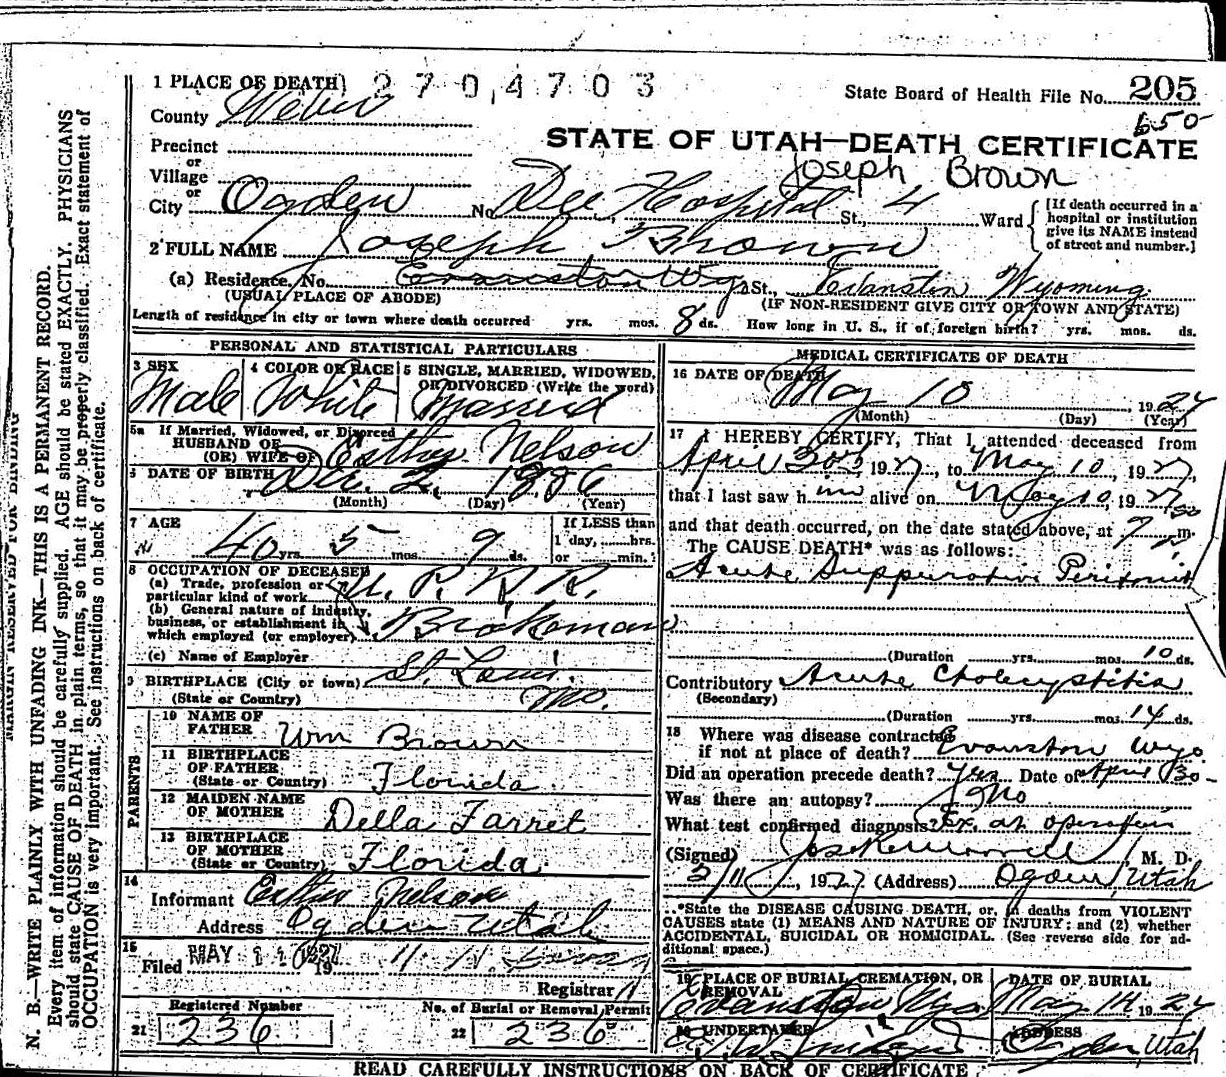 1 PLACE OF DEATH) 2 7 0 4 7 0 3
State Board of Health File No. 205
650
County Weber
STATE OF UTAH—DEATH CERTIFICATE
Precinct
or
Village
Joseph Brown
or
City Ogden No. Dee Hospital St., 4 Ward
[If death occurred in a hospital or institution give its NAME instead of street and number.]
2 FULL NAME Joseph Brown
(a) Residence, No. Evanston Wyo St., Evanston Wyoming
(USUAL PLACE OF ABODE) (IF NON-RESIDENT GIVE CITY OR TOWN AND STATE)
Length of residence in city or town where death occurred yrs. mos. 8 ds. How long in U. S., if of foreign birth? yrs. mos. ds.
PERSONAL AND STATISTICAL PARTICULARS
3 SEX Male
4 COLOR OR RACE White
5 SINGLE, MARRIED, WIDOWED, OR DIVORCED (Write the word) Married
5a If Married, Widowed, or Divorced
HUSBAND OF
(OR) WIFE OF Esther Nelson
6 DATE OF BIRTH Dec. 2, 1886
(Month) (Day) (Year)
7 AGE 40 yrs. 5 mos. 9 ds.
If LESS than
1 day, hrs.
or min.
8 OCCUPATION OF DECEASED
(a) Trade, profession or
particular kind of work U. P. R. R.
(b) General nature of industry,
business, or establishment in
which employed (or employer) Brakeman
(c) Name of Employer
9 BIRTHPLACE (City or town) St. Louis
(State or Country) Mo.
PARENTS
10 NAME OF
FATHER Wm Brown
11 BIRTHPLACE
OF FATHER
(State or Country) Florida
12 MAIDEN NAME
OF MOTHER Della Farret
13 BIRTHPLACE
OF MOTHER
(State or Country) Florida
14
Informant Esther Nelson
Address Ogden Utah
15
Filed MAY 11 1927
Registrar
Registered Number
21 236
No. of Burial or Removal Permit
22 236
MEDICAL CERTIFICATE OF DEATH
16 DATE OF DEATH May 10, 1927
(Month) (Day) (Year)
17 I HEREBY CERTIFY, That I attended deceased from
April 30th 1927, to May 10, 1927,
that I last saw him alive on May 10, 1927
and that death occurred, on the date stated above, at 7 50 m.
The CAUSE DEATH* was as follows:
Acute Suppurative Peritonitis
(Duration yrs. mos. 10 ds.
Contributory Acute Cholecystitis
(Secondary)
(Duration yrs. mos. 14 ds.
18 Where was disease contracted
if not at place of death? Evanston Wyo
Did an operation precede death? Yes Date of April 30
Was there an autopsy? No
What test confirmed diagnosis? Ex. at operation
(Signed) M. D.
5/11, 1927 (Address) Ogden, Utah
*State the DISEASE CAUSING DEATH, or, in deaths from VIOLENT
CAUSES state (1) MEANS AND NATURE OF INJURY; and (2) whether
ACCIDENTAL, SUICIDAL OR HOMICIDAL. (See reverse side for ad-
ditional space.)
19 PLACE OF BURIAL, CREMATION, OR
REMOVAL
Evanston Wyo
DATE OF BURIAL
May 14 1927
20 UNDERTAKER
ADDRESS
Ogden, Utah
READ CAREFULLY INSTRUCTIONS ON BACK OF CERTIFICATE
MARGIN RESERVED FOR BINDING
N. B.—WRITE PLAINLY WITH UNFADING INK—THIS IS A PERMANENT RECORD.
Every item of information should be carefully supplied. AGE should be stated EXACTLY. PHYSICIANS
should state CAUSE OF DEATH in plain terms, so that it may be properly classified. Exact statement of
OCCUPATION is very important. See instructions on back of certificate.